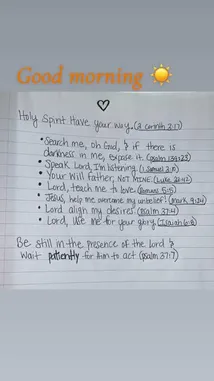 Good morning
Holy Spirit Have your way. (2 Corinth 3:17)
• Search me, oh God, & if there is
darkness in me, expose it. (psalm 139:23)
• Speak Lord, I'm listening. (1 Samuel 3:10)
• Your Will Father, NOT MINE. (Luke 22:42)
• Lord, teach me to love. (Romans 5:5)
• Jesus, help me overcome my unbelief! (Mark 9:24)
• Lord align my desires. (Psalm 37:4)
• Lord, use me for your glory. (Isaiah 6:8)
Be still in the presence of the lord &
wait patiently for Him to act (psalm 37:7)